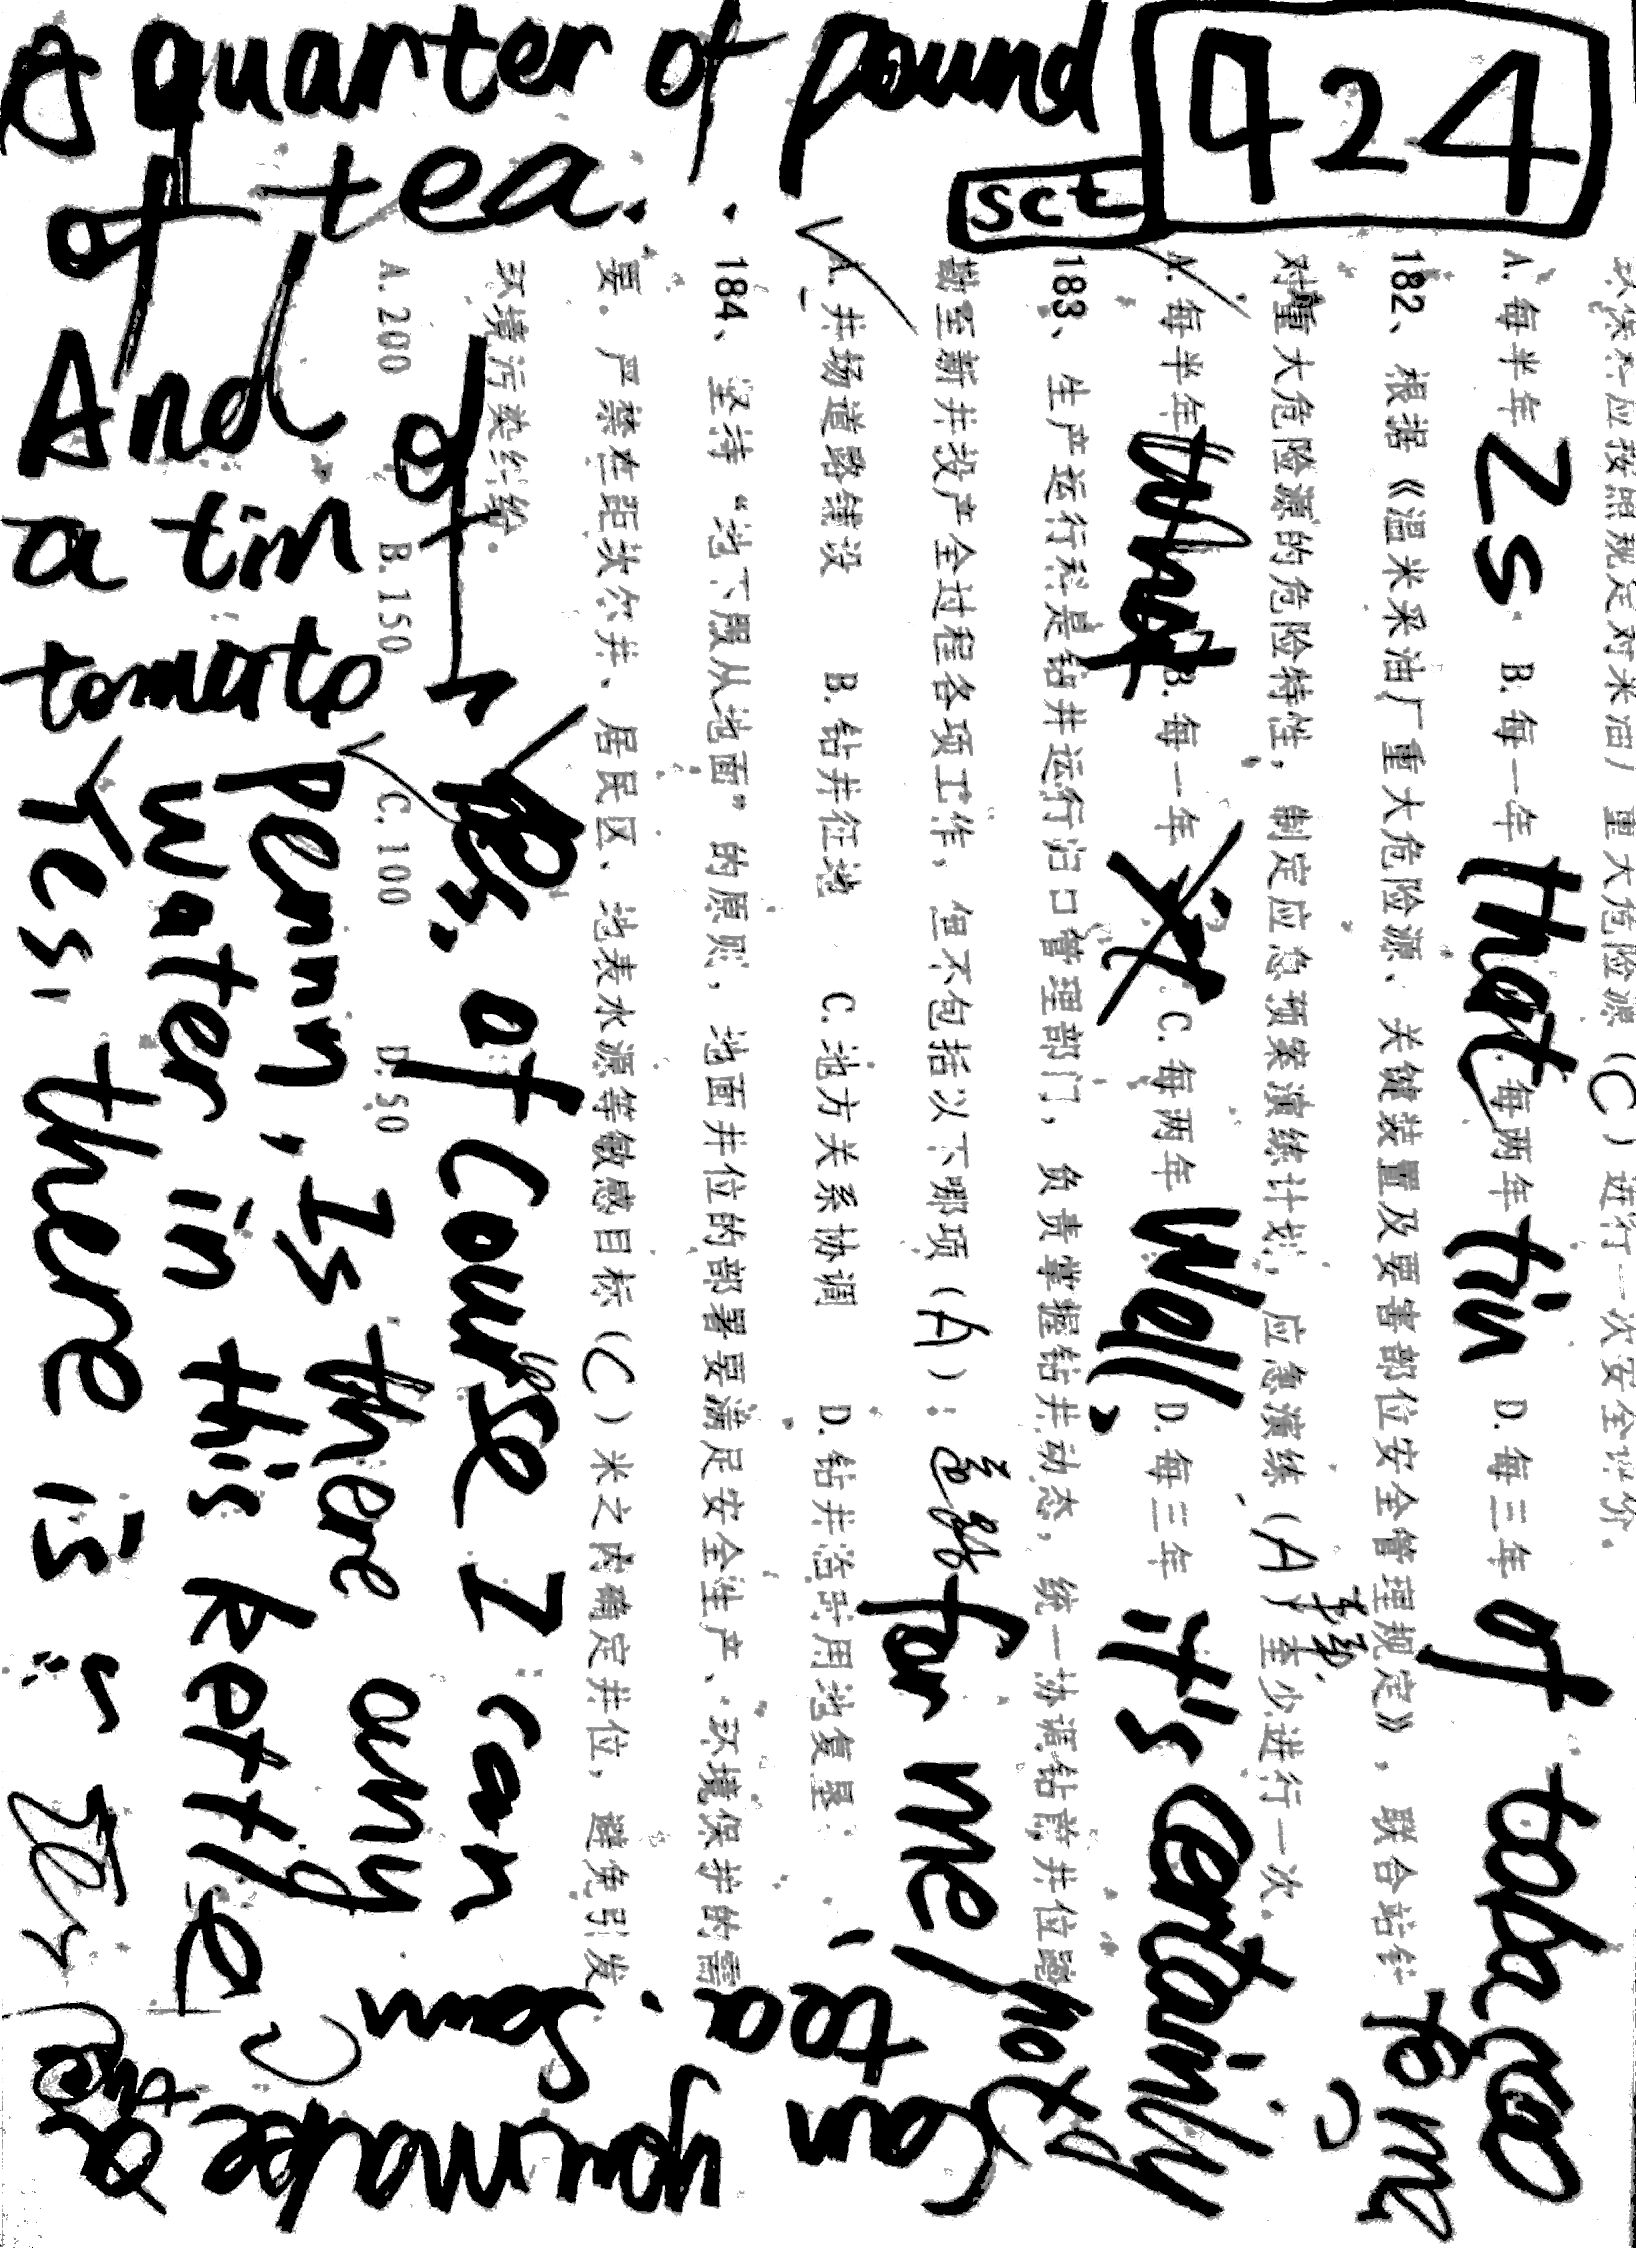 A quarter of pound
of tea.
424
sct
And
a tin of
tomato
Is that tin of tobacco
for me?
Well, it's certainly
not
for me!
Can you make
tea, Sam
Yes, of course I can
Is there any
water in this kettle
Yes, there is
A. 每半年 B. 每一年 C. 每两年 D. 每三年
182、根据《温米采油厂重大危险源、关键装置及要害部位安全管理规定》，联合站针
对重大危险源的危险特性，制定应急预案演练计划，应急演练（A）至少进行一次。
A. 每半年 B. 每一年 C. 每两年 D. 每三年
183、生产运行科是钻井运行归口管理部门，负责掌握钻井动态，统一协调钻前井位踏
勘至新井投产全过程各项工作，但不包括以下哪项（A）：道路
A. 井场道路建设 B. 钻井征地 C. 地方关系协调 D. 钻井浩时用地复垦
184、坚持“地下服从地面”的原则，地面井位的部署要满足安全生产、环境保护的需
要。严禁在距坎尔井、居民区、地表水源等敏感目标（C）米之内确定井位，避免引发
环境污染纠纷。
A. 200 B. 150 C. 100 D. 50